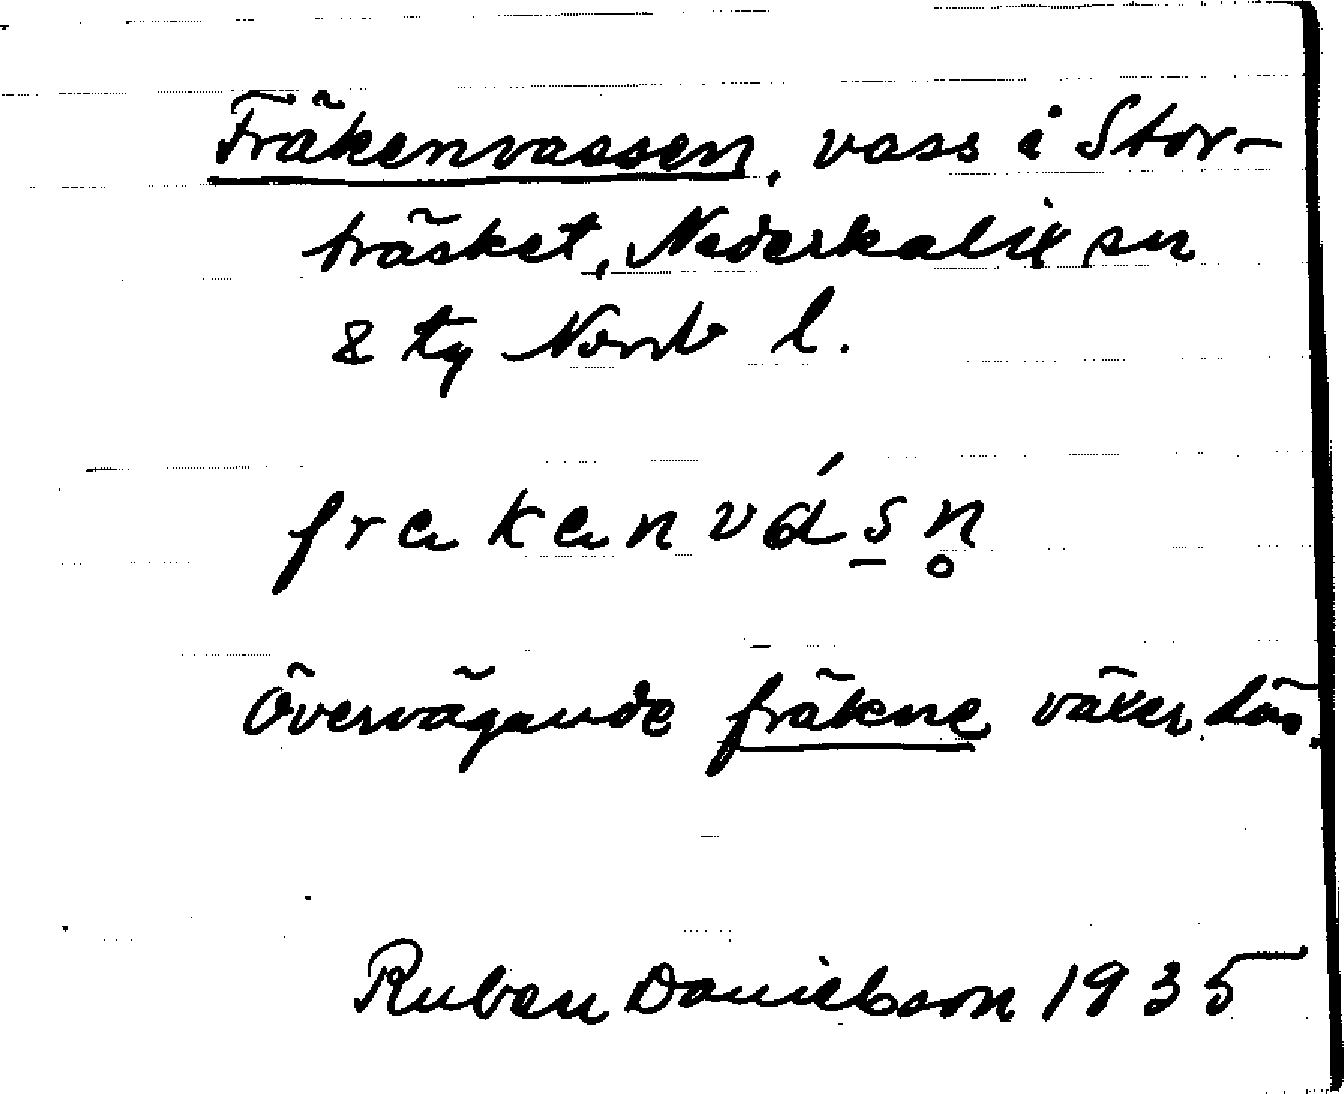 Fräkenvassen, vass i Stor-
träsket, Nederkalix sn
& tg Norrb l.
frakenvás̱n̥
Övervägande fräkne växer där.
Ruben Danielsson 1935